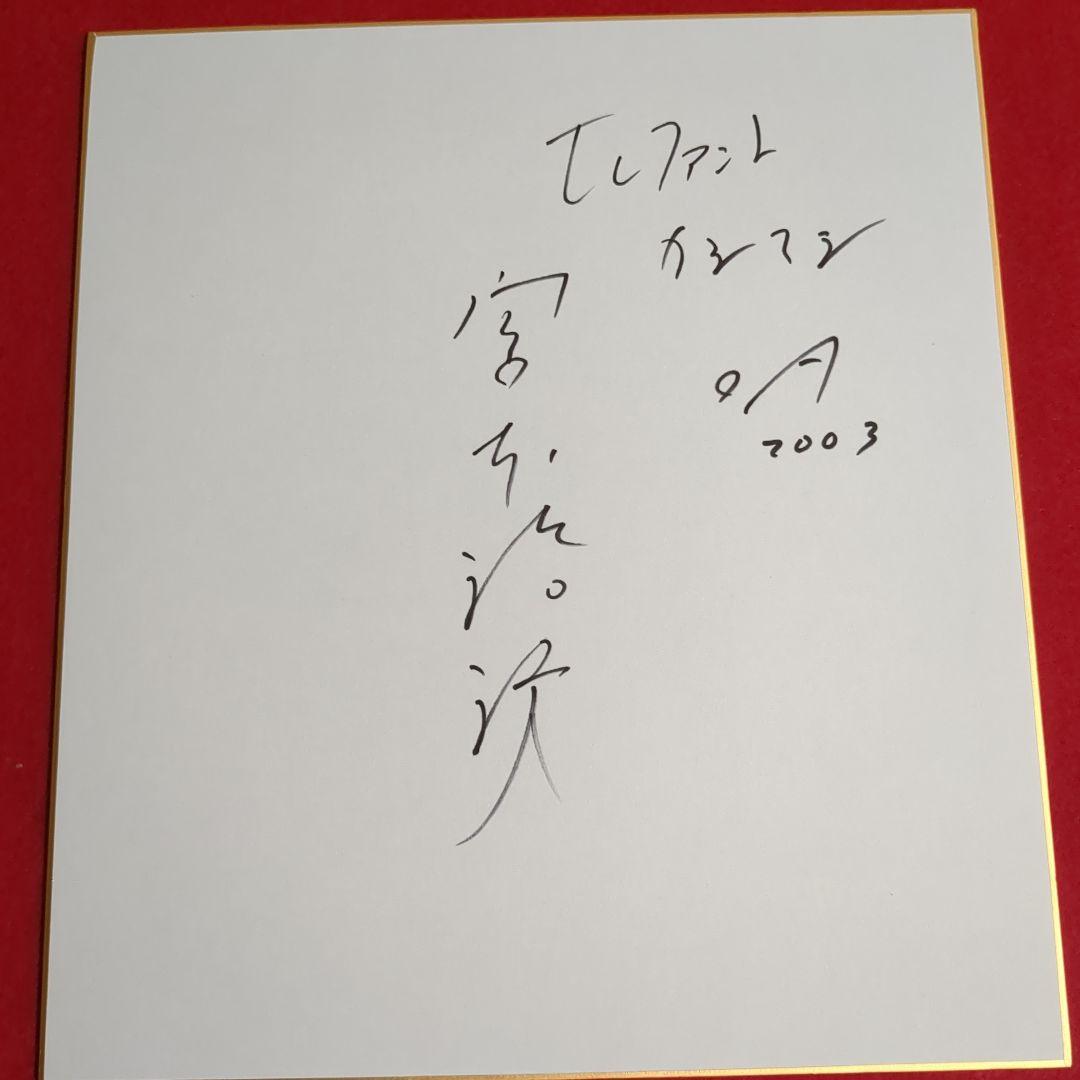 エレファント
カシマシ
9月
2003
宮本浩次